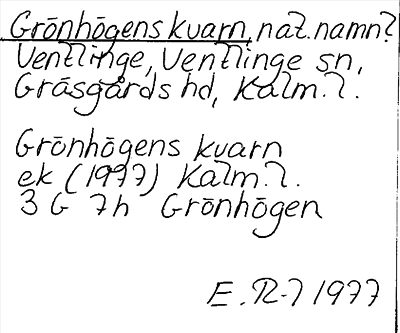 Grönhögens kvarn, nat.namn?
Ventlinge, Ventlinge sn,
Gräsgårds hd, Kalm. l.
Grönhögens kvarn
ek (1977) Kalm. l.
3 G 7h Grönhögen
E. R-l 1977